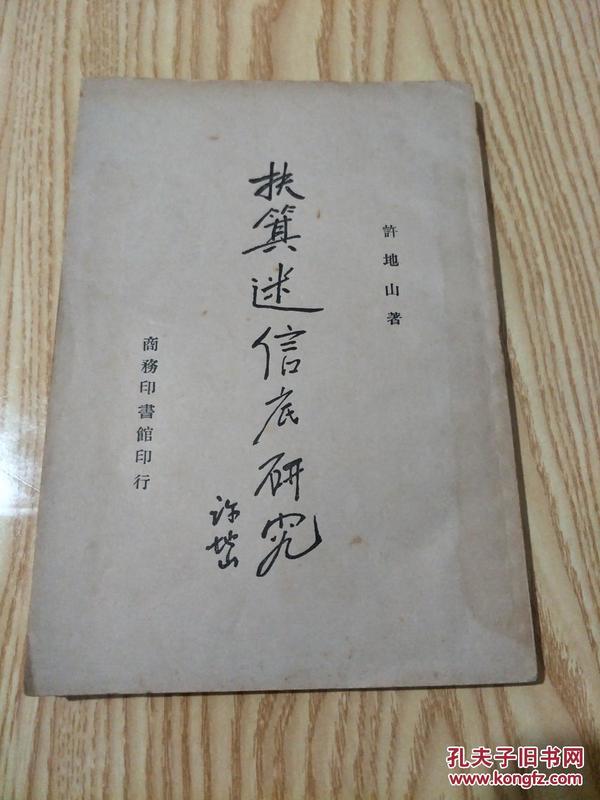 許地山著
扶箕迷信底研究
許地山
商務印書館印行
孔夫子旧书网
www.kongfz.com